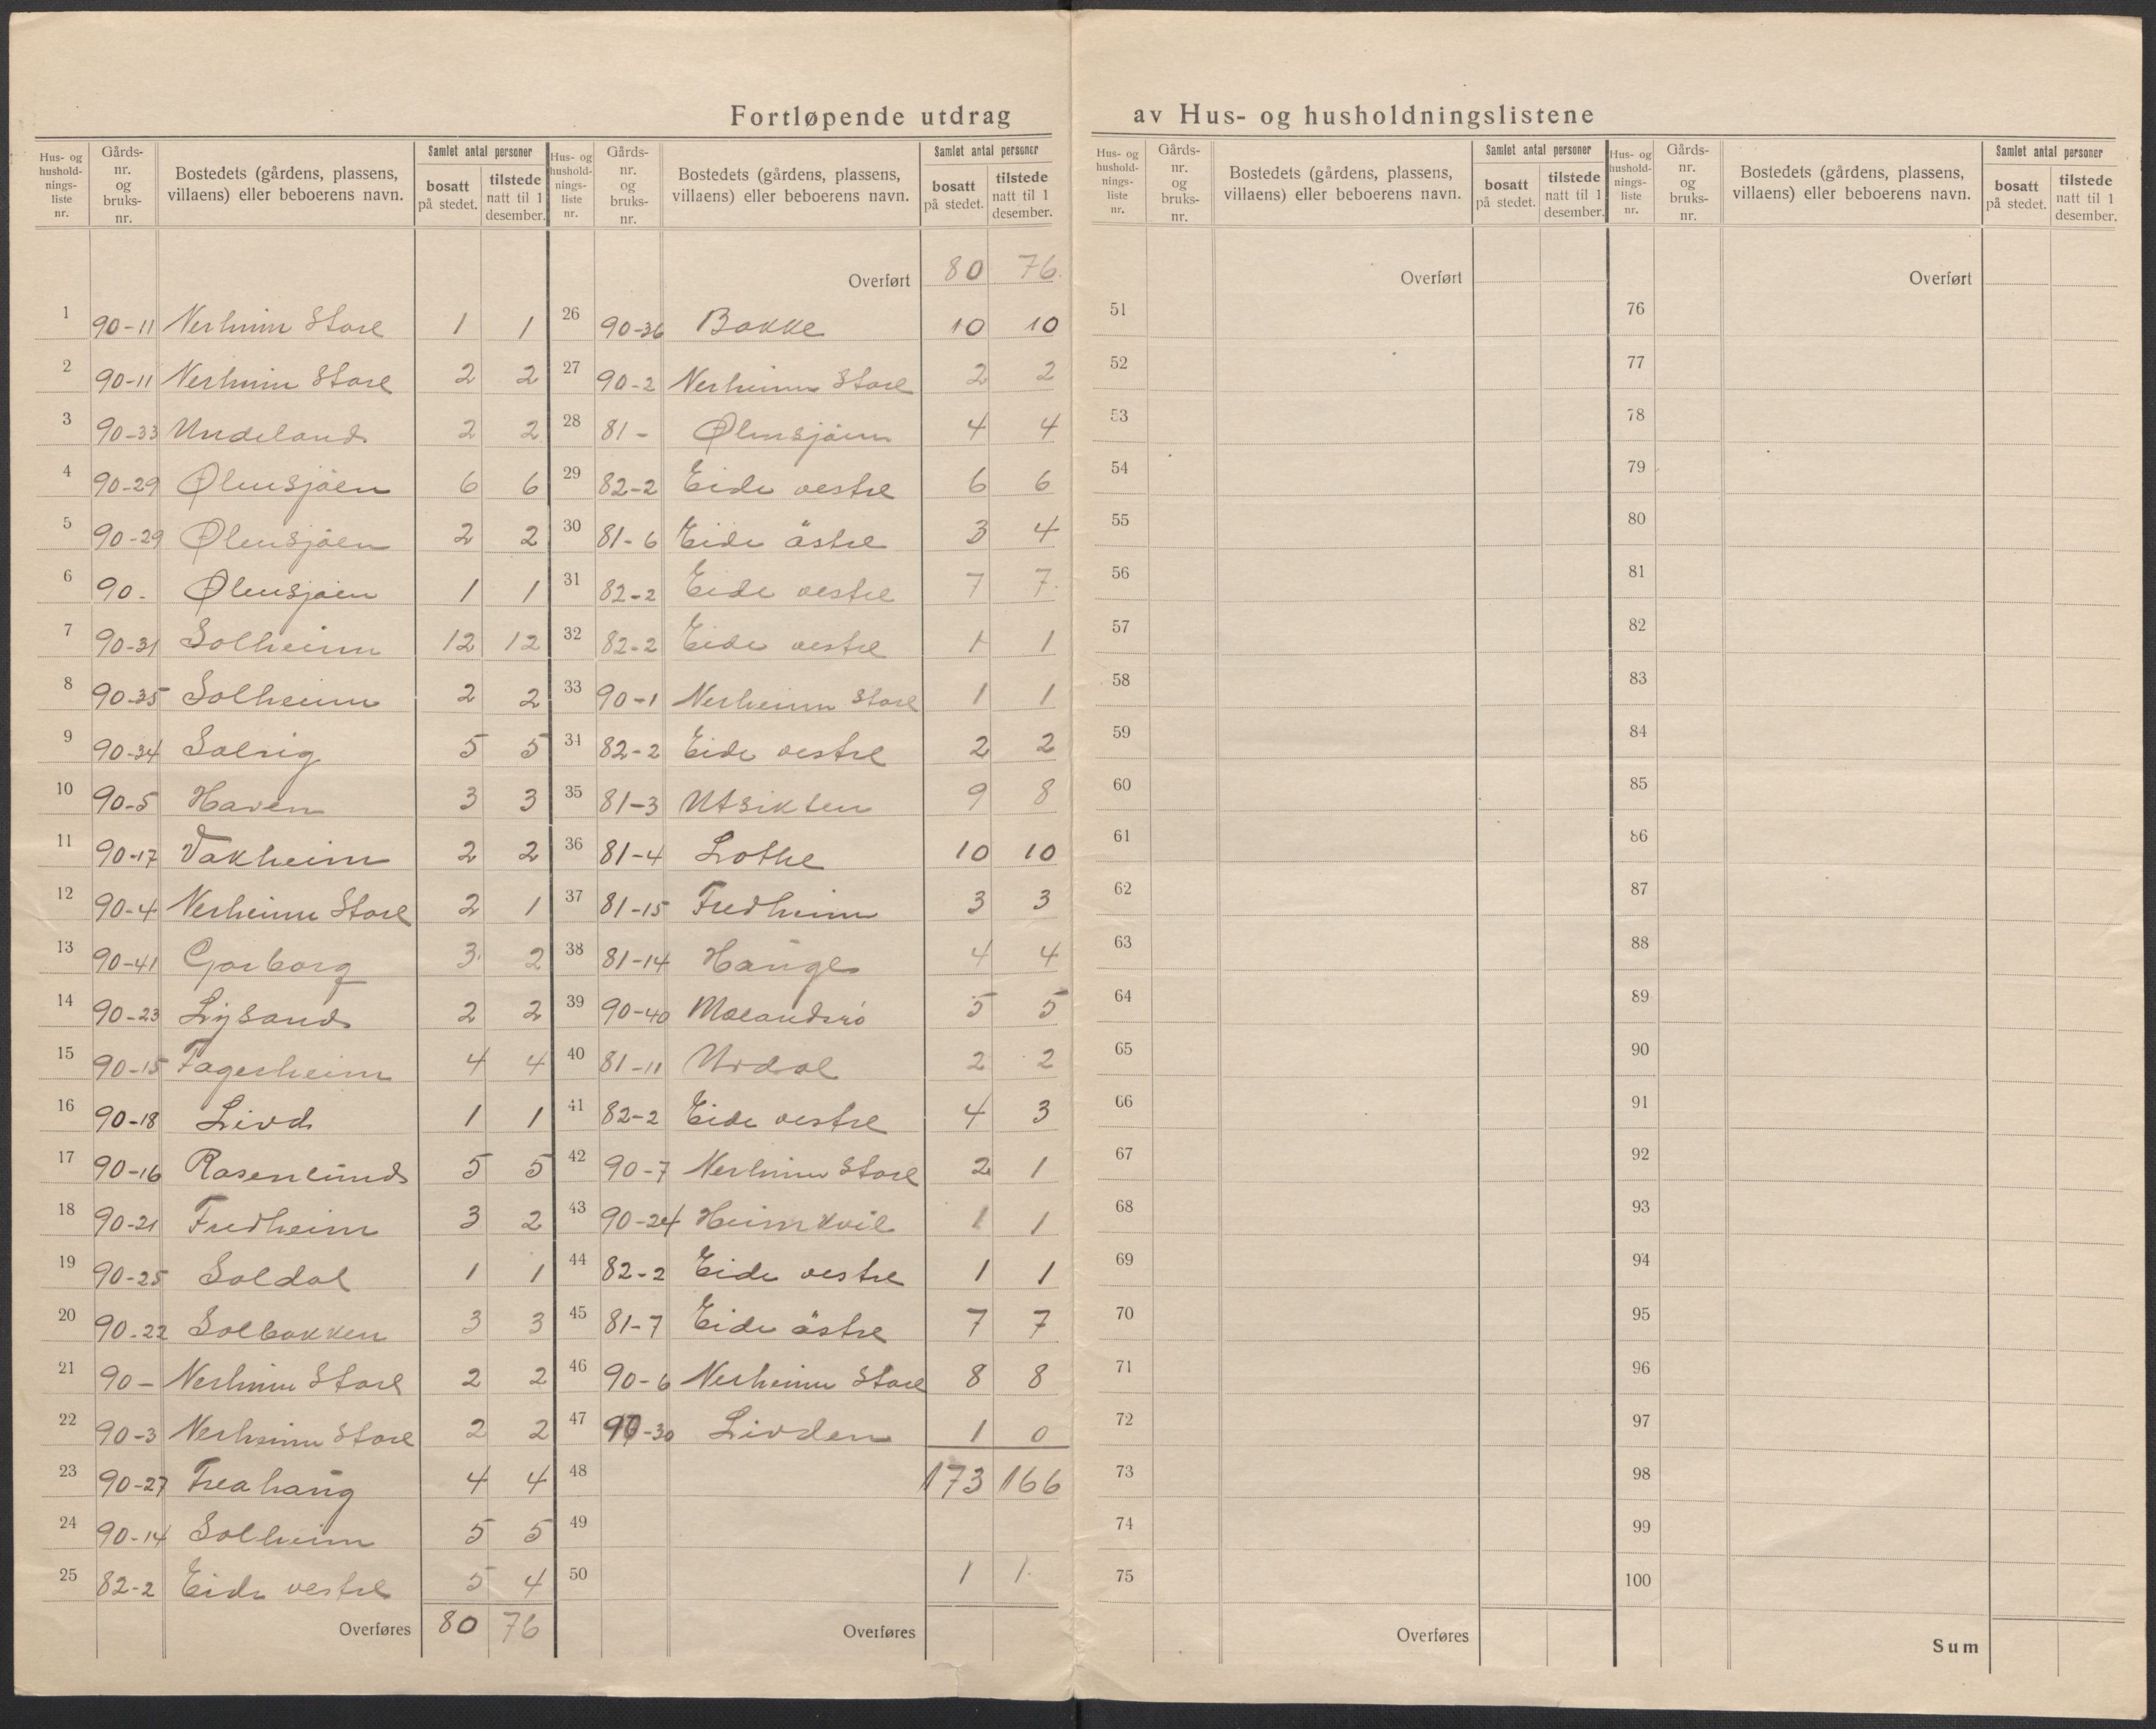 Fortløpende utdrag av Hus- og husholdningslistene
Hus- og hushold-nings-liste nr. Gårds-nr. og bruks-nr. Bostedets (gårdens, plassens, villaens) eller beboerens navn. Samlet antal personer bosatt på stedet. tilstede natt til 1 desember.
1 90-11 Nerheim Store 1 1
2 90-11 Nerheim Store 2 2
3 90-33 Undeland 2 2
4 90-29 Ølensjøen 6 6
5 90-29 Ølensjøen 2 2
6 90- Ølensjøen 1 1
7 90-31 Solheim 12 12
8 90-35 Solheim 2 2
9 90-34 Solvig 5 5
10 90-5 Haven 3 3
11 90-17 Vakheim 2 2
12 90-4 Nerheim Store 2 1
13 90-41 Garborg 3 2
14 90-23 Lysand 2 2
15 90-15 Fagerheim 4 4
16 90-18 Livd 1 1
17 90-16 Rosenlund 5 5
18 90-21 Fredheim 3 2
19 90-25 Soldal 1 1
20 90-22 Solbakken 3 3
21 90- Nerheim Store 2 2
22 90-3 Nerheim Store 2 2
23 90-27 4 4
24 90-14 Solheim 5 5
25 82-2 Eide vestre 5 4
Overføres 80 76
Hus- og hushold-nings-liste nr. Gårds-nr. og bruks-nr. Bostedets (gårdens, plassens, villaens) eller beboerens navn. Samlet antal personer bosatt på stedet. tilstede natt til 1 desember.
Overført 80 76
26 90-36 Bakke 10 10
27 90-2 Nerheim Store 2 2
28 81- Ølensjøen 4 4
29 82-2 Eide vestre 6 6
30 81-6 Eide östre 3 4
31 82-2 Eide vestre 7 7
32 82-2 Eide vestre 1 1
33 90-1 Nerheim Store 1 1
34 82-2 Eide vestre 2 2
35 81-3 Utsikten 9 8
36 81-4 Lothe 10 10
37 81-15 Fredheim 3 3
38 81-14 Hauge 4 4
39 90-40 5 5
40 81-11 Urdal 2 2
41 82-2 Eide vestre 4 3
42 90-7 Nerheim Store 2 1
43 90-24 Heimkvil 1 1
44 82-2 Eide vestre 1 1
45 81-7 Eide östre 7 7
46 90-6 Nerheim Store 8 8
47 90-30 Livden 1 0
48 173 166
49
50 1 1
Overføres
Hus- og hushold-nings-liste nr. Gårds-nr. og bruks-nr. Bostedets (gårdens, plassens, villaens) eller beboerens navn. Samlet antal personer bosatt på stedet. tilstede natt til 1 desember.
Overført
51
52
53
54
55
56
57
58
59
60
61
62
63
64
65
66
67
68
69
70
71
72
73
74
75
Overføres
Hus- og hushold-nings-liste nr. Gårds-nr. og bruks-nr. Bostedets (gårdens, plassens, villaens) eller beboerens navn. Samlet antal personer bosatt på stedet. tilstede natt til 1 desember.
Overført
76
77
78
79
80
81
82
83
84
85
86
87
88
89
90
91
92
93
94
95
96
97
98
99
100
Sum